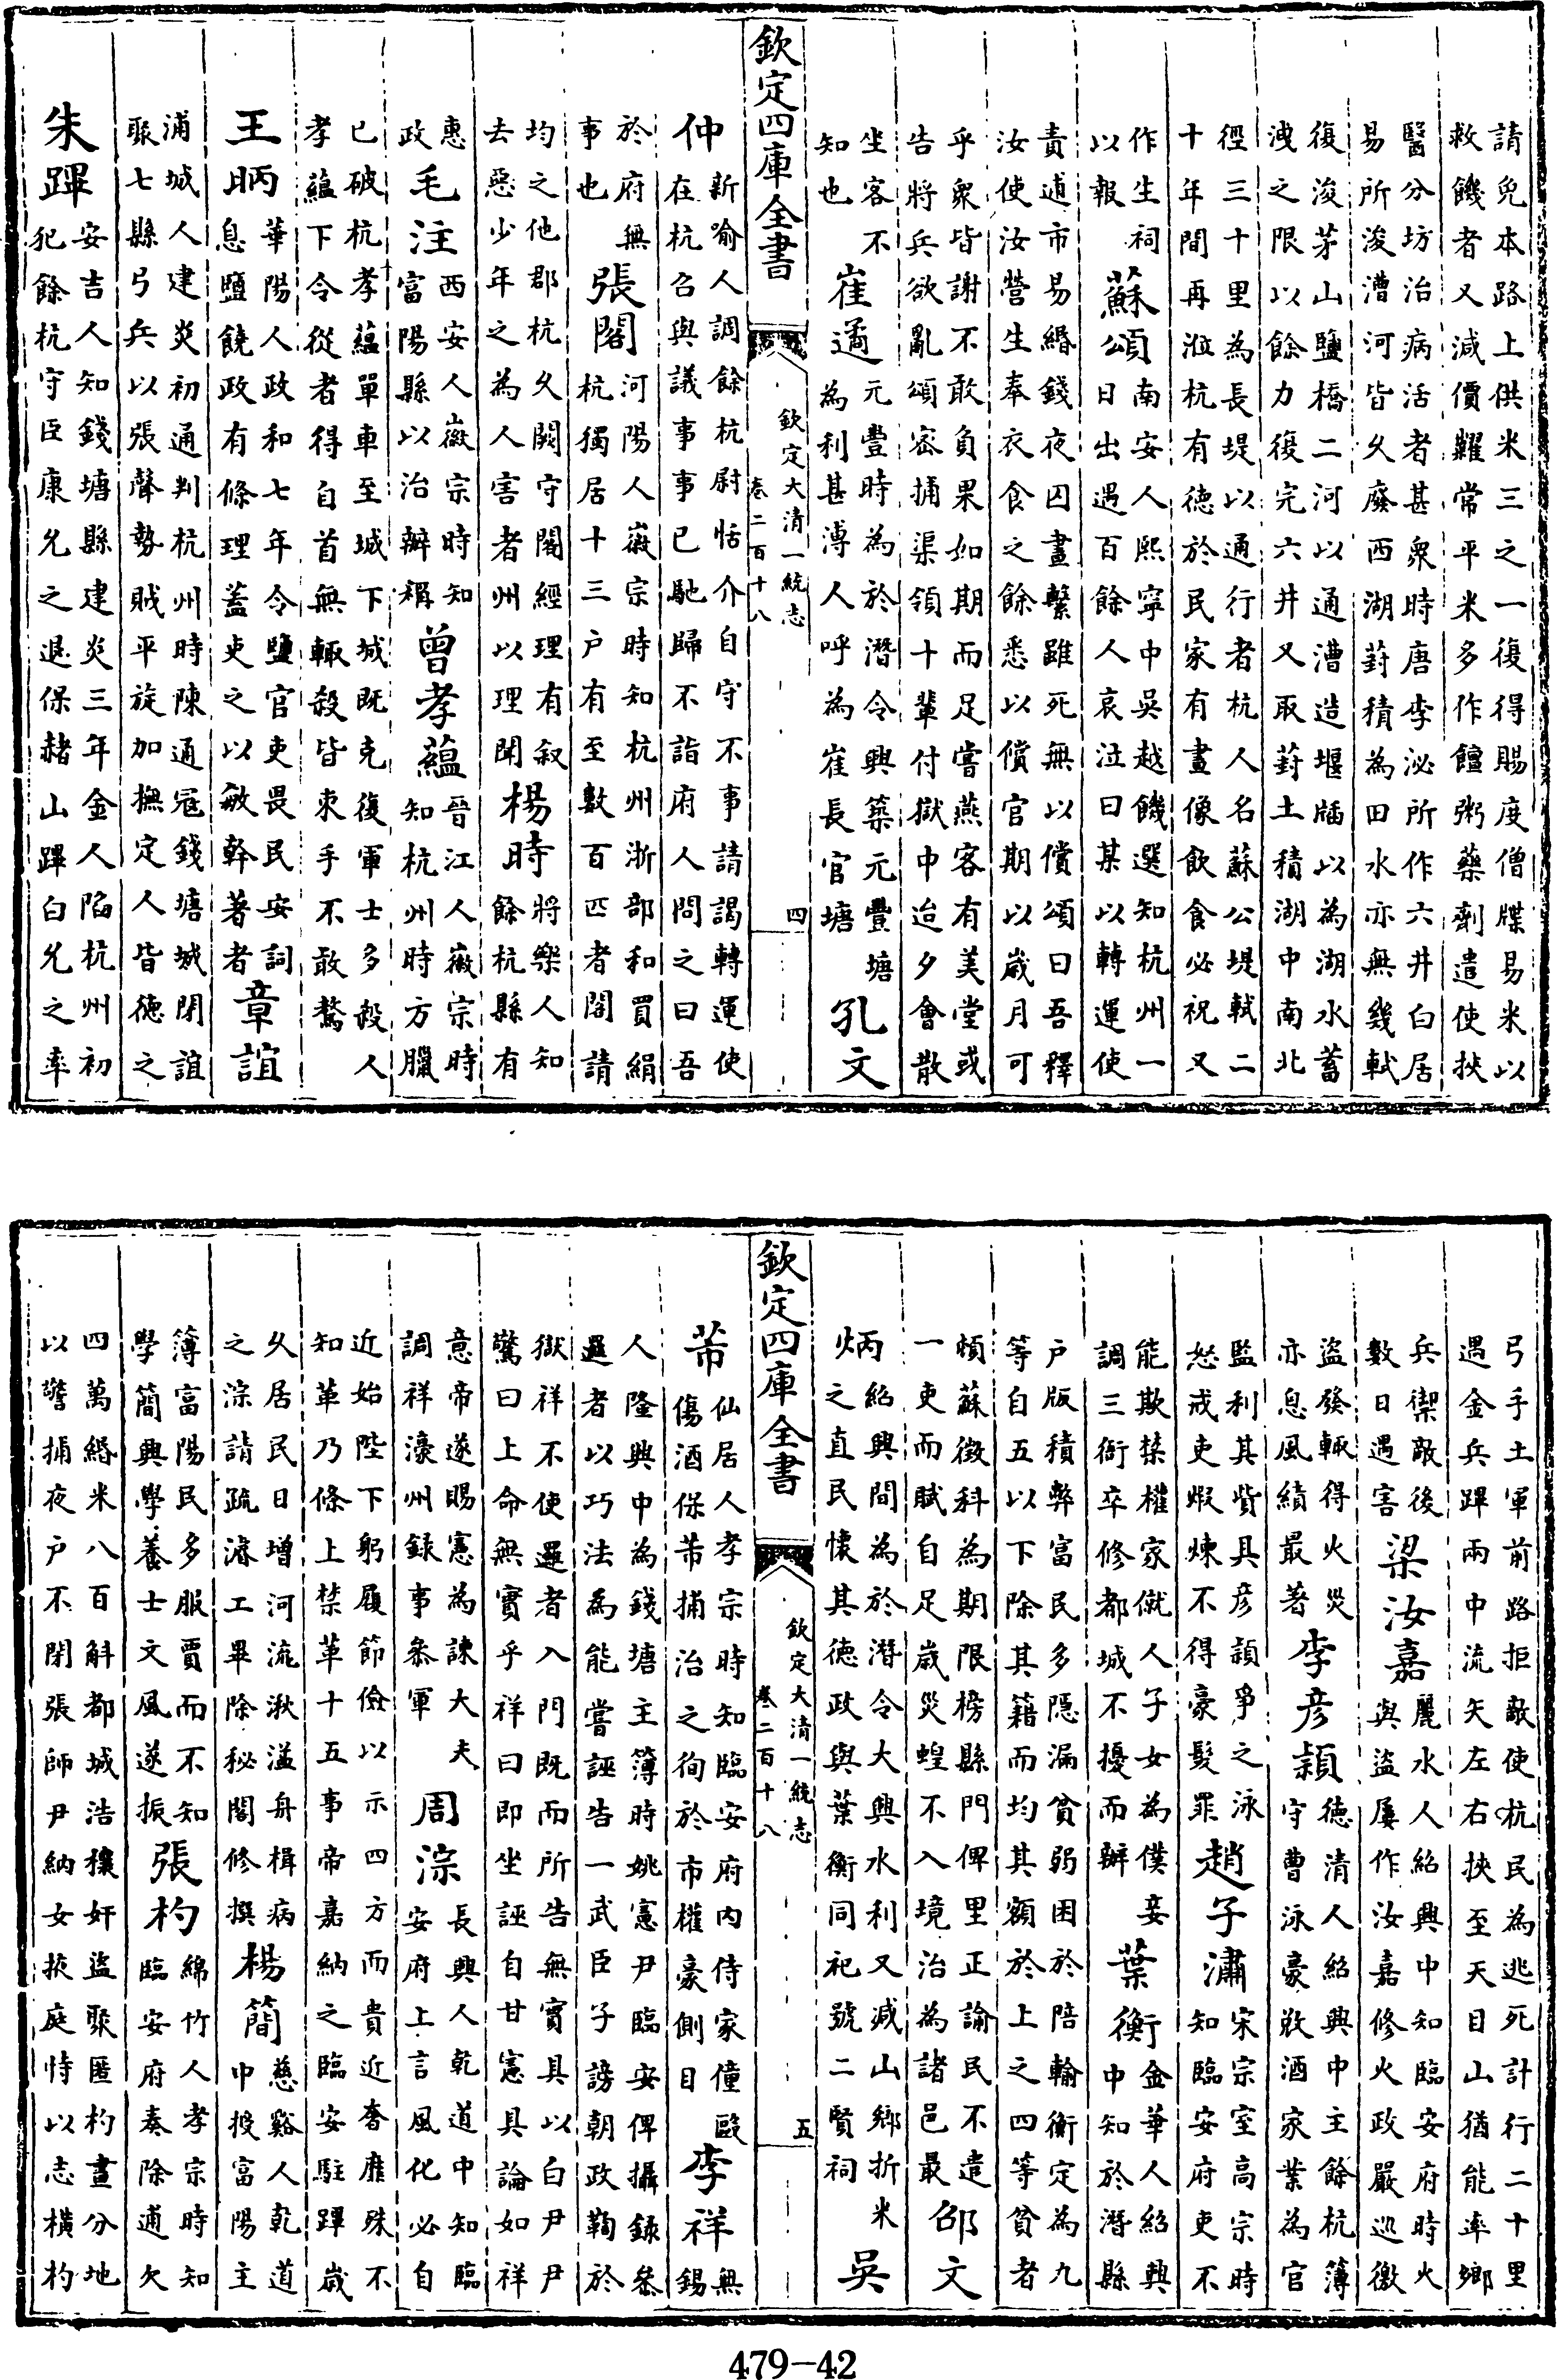 請免本路上供米三之一復得賜度僧牒易米以
救饑者又減價糶常平米多作饘粥藥劑遣使挾
醫分坊治病活者甚衆時唐李泌所作六井白居
易所浚漕河皆久廢西湖葑積為田水亦無幾軾
復浚茅山鹽橋二河以通漕造堰牐以為湖水蓄
洩之限以餘力復完六井又取葑土積湖中南北
徑三十里為長堤以通行者杭人名蘇公堤軾二
十年間再涖杭有德於民家有畫像飲食必祝又
作生祠
以報
蘇頌
南安人熙寧中吳越饑選知杭州一
日出遇百餘人哀泣曰某以轉運使
責逋市易緡錢夜囚晝繫雖死無以償頌曰吾釋
汝使汝營生奉衣食之餘悉以償官期以歲月可
乎衆皆謝不敢負果如期而足嘗燕客有美堂或
告將兵欲亂頌密捕渠領十輩付獄中迨夕會散
坐客不
知也
崔遹
元豐時為於潛令興築元豐塘
為利甚溥人呼為崔長官塘
孔文
欽定四庫全書
欽定大清一統志
卷二百十八
四
仲
新喻人調餘杭尉恬介自守不事請謁轉運使
在杭召與議事事已馳歸不詣府人問之曰吾
於府無
事也
張閣
河陽人徽宗時知杭州浙部和買絹
杭獨居十三户有至數百匹者閣請
均之他郡杭久闕守閣經理有叙
去惡少年之為人害者州以理聞
楊時
將樂人知
餘杭縣有
惠
政
毛注
西安人徽宗時知
富陽縣以治辦稱
曾孝蘊
晉江人徽宗時
知杭州時方臘
已破杭孝蘊單車至城下城既克復軍士多殺人
孝蘊下令從者得自首無輙殺皆束手不敢驁
王昞
華陽人政和七年令鹽官吏畏民安詞
息鹽饒政有條理蓋吏之以敏幹著者
章誼
浦城人建炎初通判杭州時陳通冦錢塘城閉誼
聚七縣弓兵以張聲勢賊平旋加撫定人皆德之
朱蹕
安吉人知錢塘縣建炎三年金人陷杭州初
犯餘杭守臣康允之退保赭山蹕白允之率
弓手土軍前路拒敵使杭民為逃死計行二十里
遇金兵蹕兩中流矢左右挾至天目山猶能率鄉
兵禦敵後
數日遇害
梁汝嘉
麗水人紹興中知臨安府時火
與盜屢作汝嘉修火政嚴巡徼
盜發輙得火災
亦息風績最著
李彥穎
德清人紹興中主餘杭簿
守曹泳豪敚酒家業為官
監利其貲具彥穎爭之泳
怒戒吏煅煉不得豪髮罪
趙子潚
宋宗室高宗時
知臨安府吏不
能欺禁權家僦人子女為僕妾
調三衙卒修都城不擾而辦
葉衡
金華人紹興
中知於潛縣
户版積弊富民多隱漏貧弱困於陪輸衡定為九
等自五以下除其籍而均其額於上之四等貧者
頓蘇徵科為期限榜縣門俾里正諭民不遣
一吏而賦自足歲災蝗不入境治為諸邑最
邵文
炳
紹興間為於潛令大興水利又減山鄉折米
之直民懷其德政與葉衡同祀號二賢祠
吳
欽定四庫全書
欽定大清一統志
卷二百十八
五
芾
仙居人孝宗時知臨安府内侍家僮毆
傷酒保芾捕治之徇於市權豪側目
李祥
無
錫
人隆興中為錢塘主簿時姚憲尹臨安俾攝錄參
邏者以巧法為能嘗誣告一武臣子謗朝政鞫於
獄祥不使邏者入門既而所告無實具以白尹尹
驚曰上命無實乎祥曰即坐誣自甘憲具論如祥
意帝遂賜憲為諫大夫
調祥濠州録事叅軍
周淙
長興人乾道中知臨
安府上言風化必自
近始陛下躬履節儉以示四方而貴近奢靡殊不
知革乃條上禁革十五事帝嘉納之臨安駐蹕歲
久居民日增河流湫溢舟楫病
之淙請疏濬工畢除秘閣修撰
楊簡
慈谿人乾道
中授富陽主
簿富陽民多服賈而不知
學簡興學養士文風遂振
張杓
綿竹人孝宗時知
臨安府奏除逋欠
四萬緡米八百斛都城浩穰奸盜聚匿杓畫分地
以警捕夜户不閉張師尹納女掖庭恃以恣橫杓
479-42